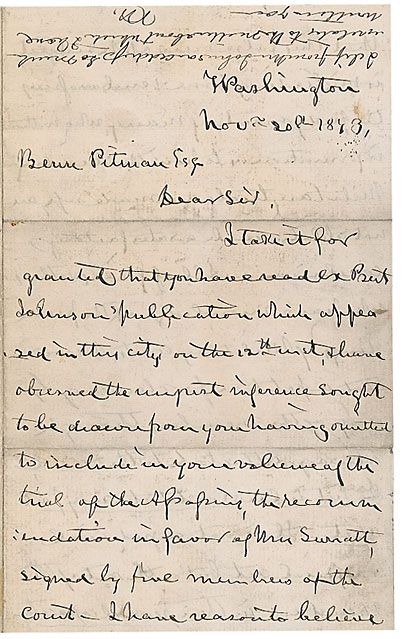 I clip from Mr Johnsons so much
relates to the matter about which I have
written you
Washington
Nov 20th 1873,
Benn Pitman Esq
Dear Sir,
I take it for
granted that you have read ex Prest
Johnsons publication which appea
red in this city on the 12th inst, I have
observed the unjust inference sought
to be drawn from your having omitted
to include in your volume of the
trial of the Assassins, the recomm
endation in favor of Mrs Surratt,
signed by five members of the
Court – I have reason to believe